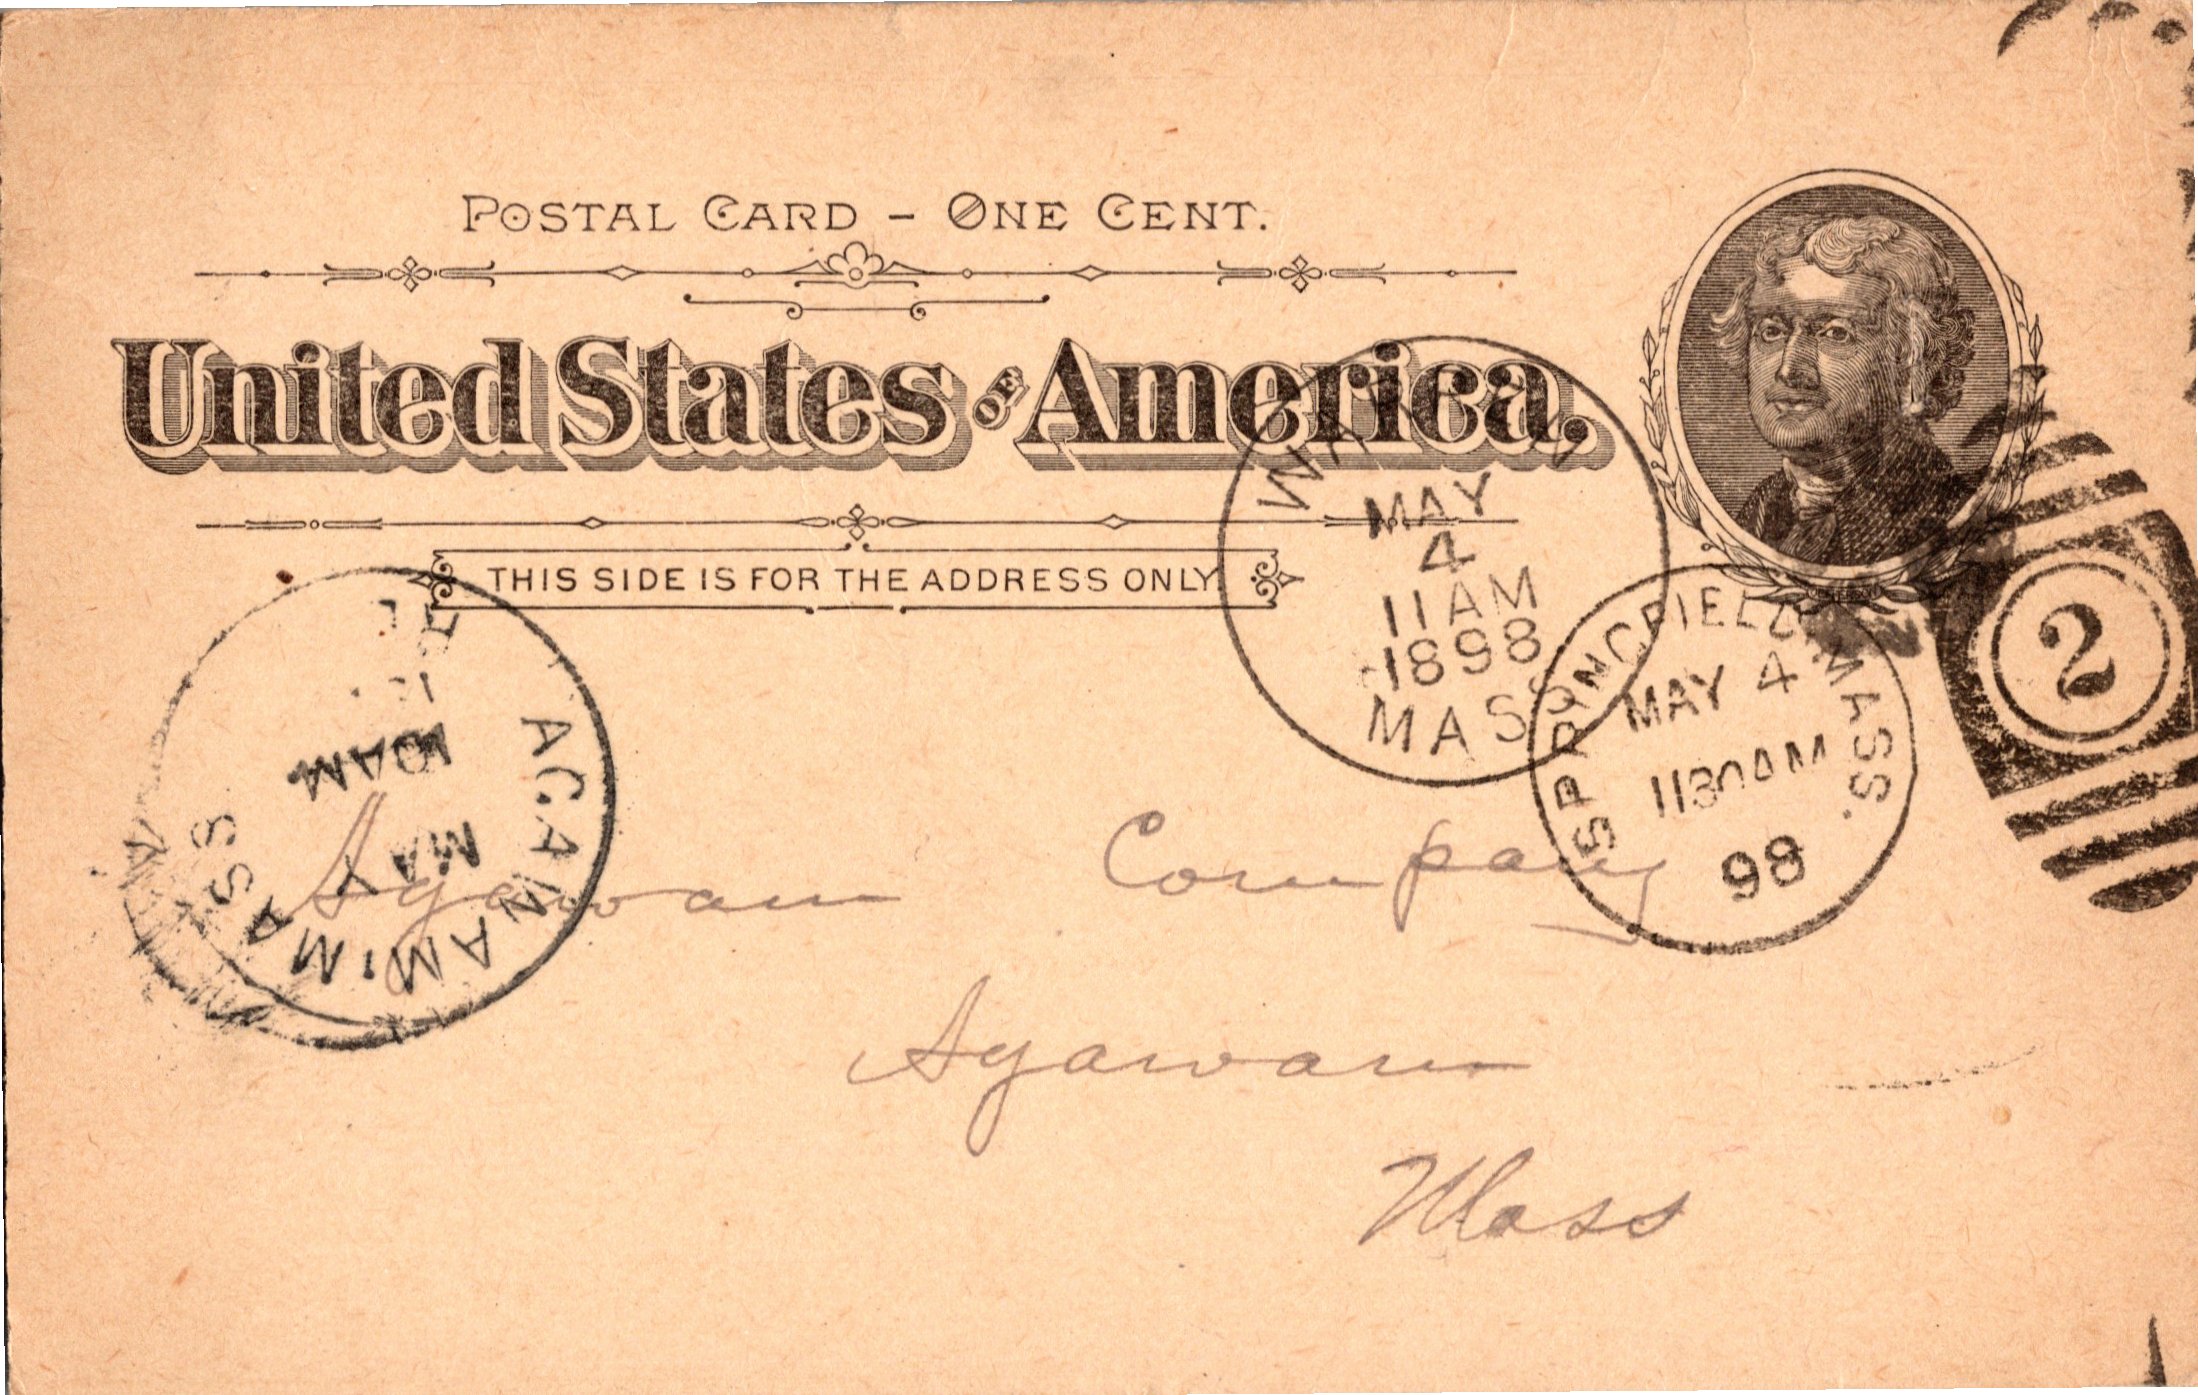 POSTAL CARD – ONE CENT.
United States OF America.
THIS SIDE IS FOR THE ADDRESS ONLY
MAY
4
11 AM
1898
MASS
SPRINGFIELD, MASS.
MAY 4
1130AM
98
2
AGAWAM MASS
MAY
10AM
Agawam Company
Agawam
Mass